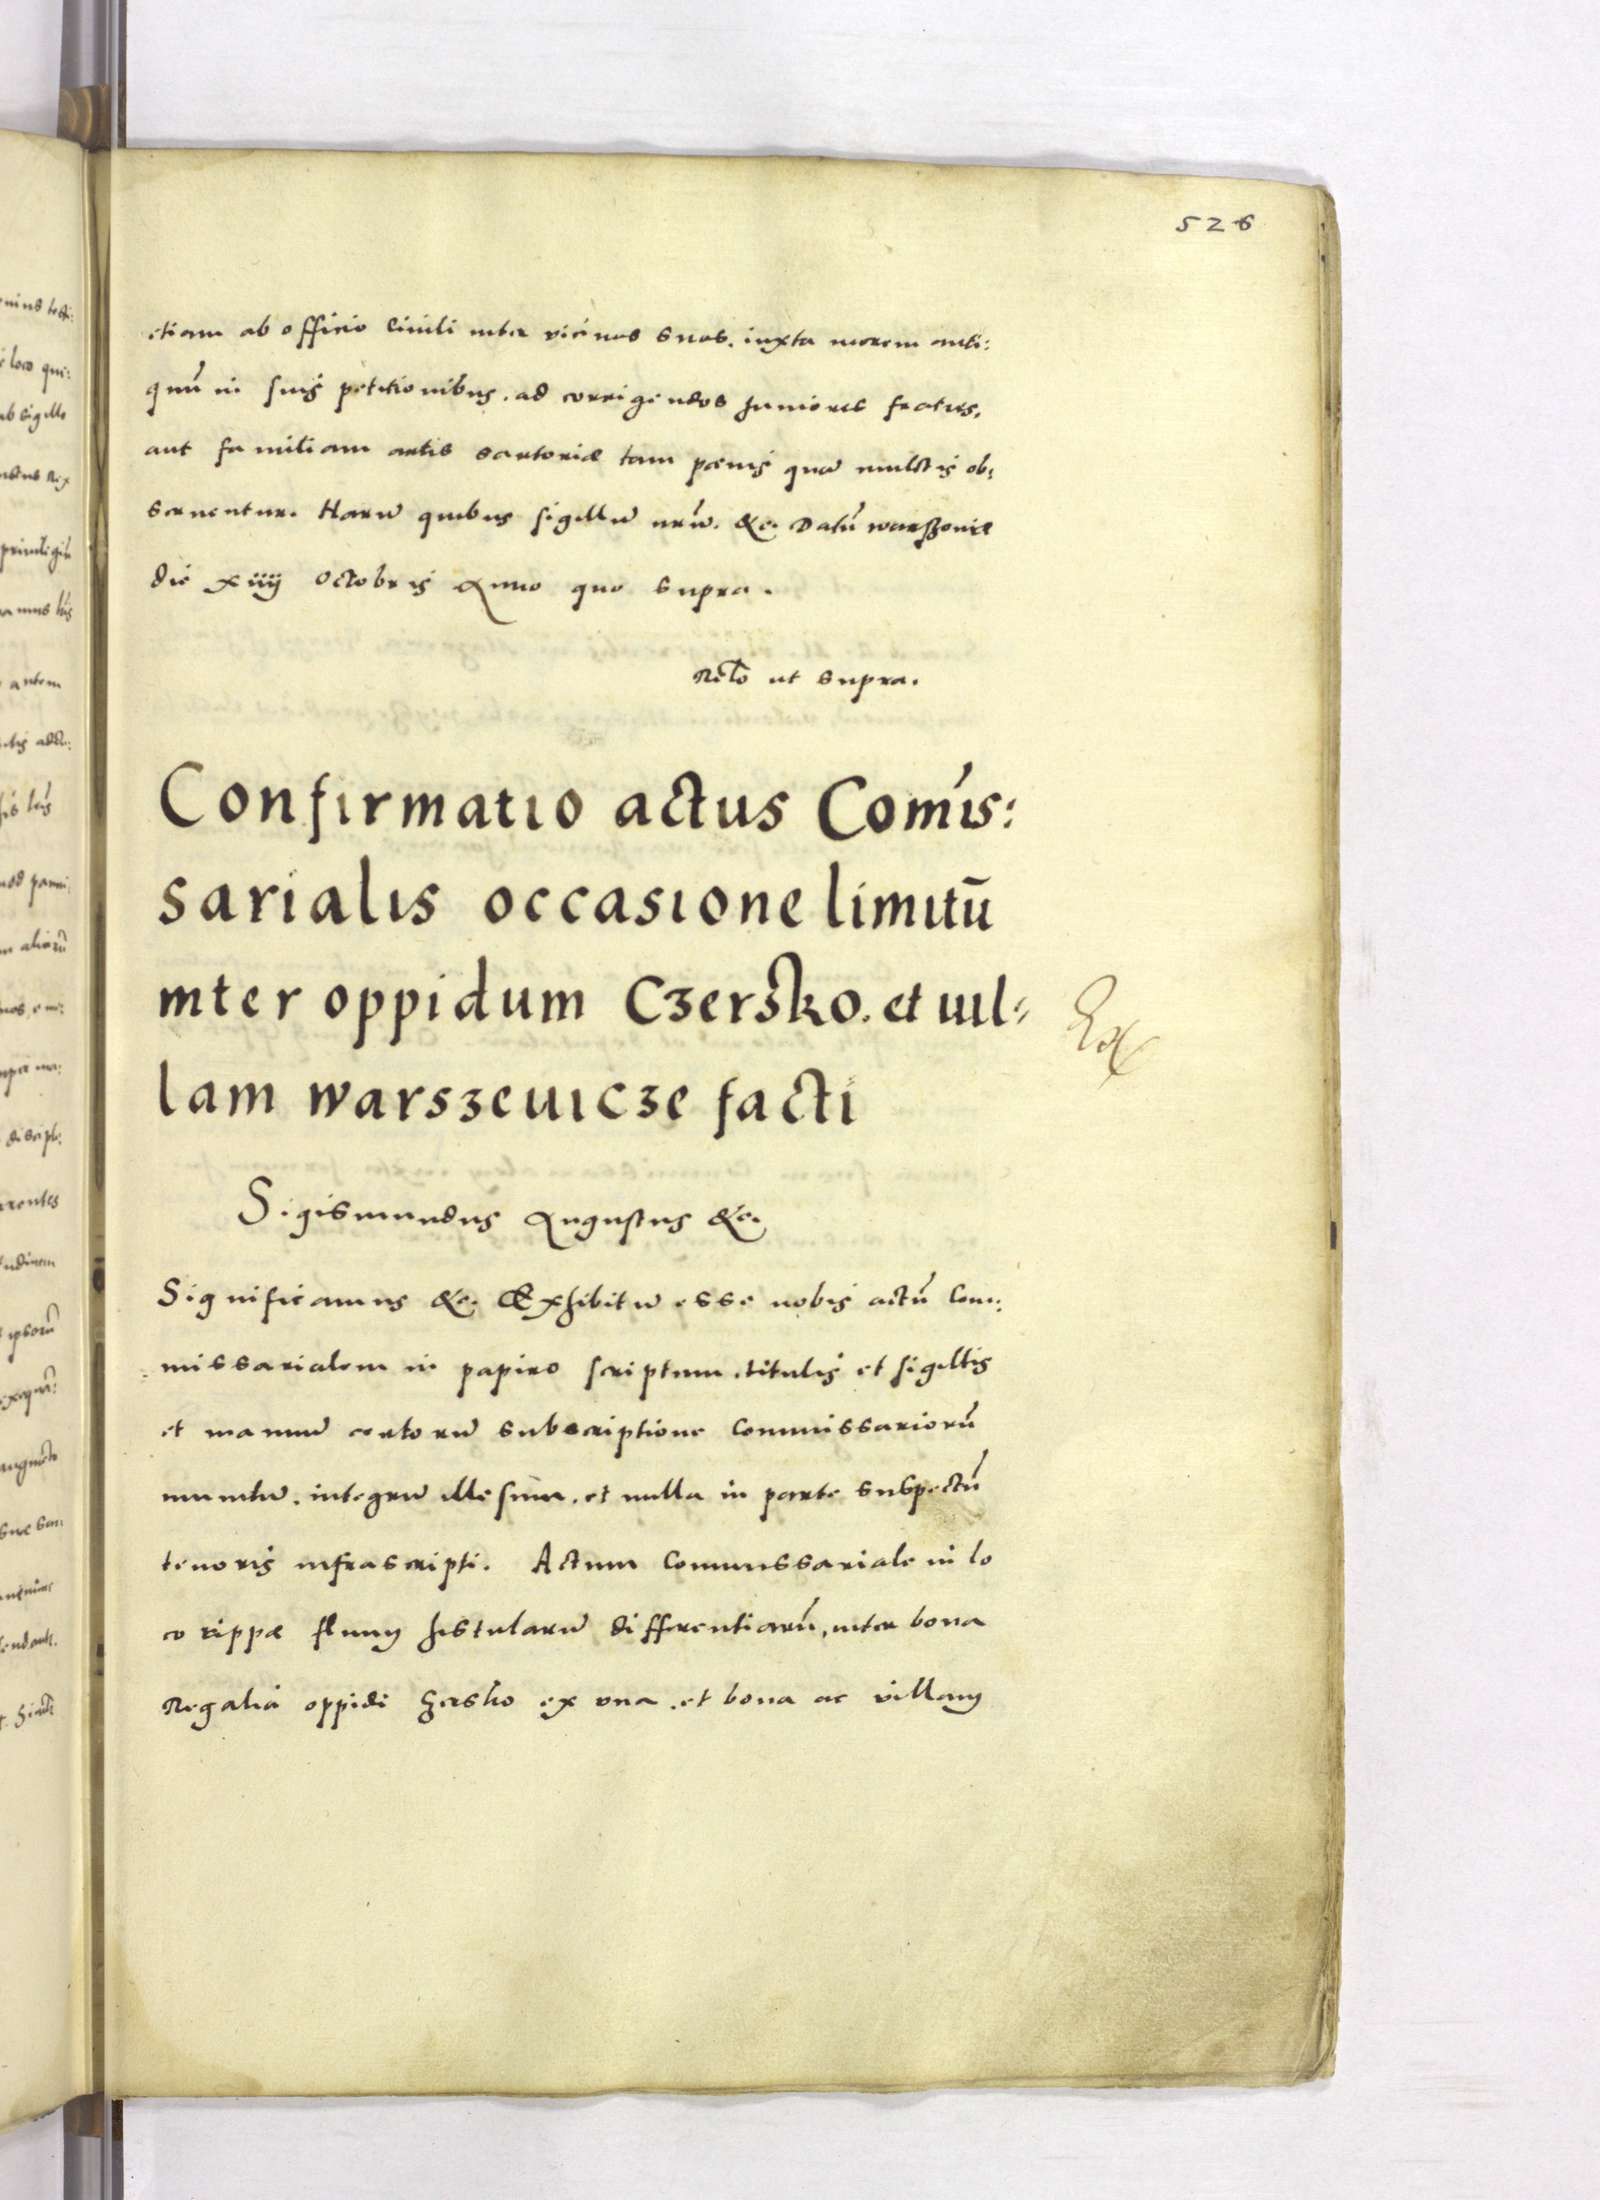 526
etiam ab officio ciuili inter vicinos suos. iuxta morem anti:
quũ in suis petitionibus. ad corrigendos Juniores fratres,
aut familiam artis sartoriæ tam pœnis quã mulctis ob:
seruentur. Harũ quibus sigillũ nrũ. &c. Datũ warszouiæ
die xiiij Octobris Anno quo supra.
Relõ ut supra.
Confirmatio actus Comĩs:
sarialis occasione limitũ
inter oppidum Czersko. et uil-
lam warszeuicze facti
Ex
Sigismundus Augustus &c.
Significamus &c. Exhibitũ esse nobis actũ Com:
missarialem in papiro scriptum. titulis et sigillis
et manuũ certorũ subscriptione Commissariorũ
munitũ. integrũ illesum. et nulla in parte suspectũ
tenoris infrascripti. Actum Commissariale in lo
co rippæ fluuij histularũ differentiarũ, inter bona
Regalia oppidi Czersko ex vna. et bona ac villam